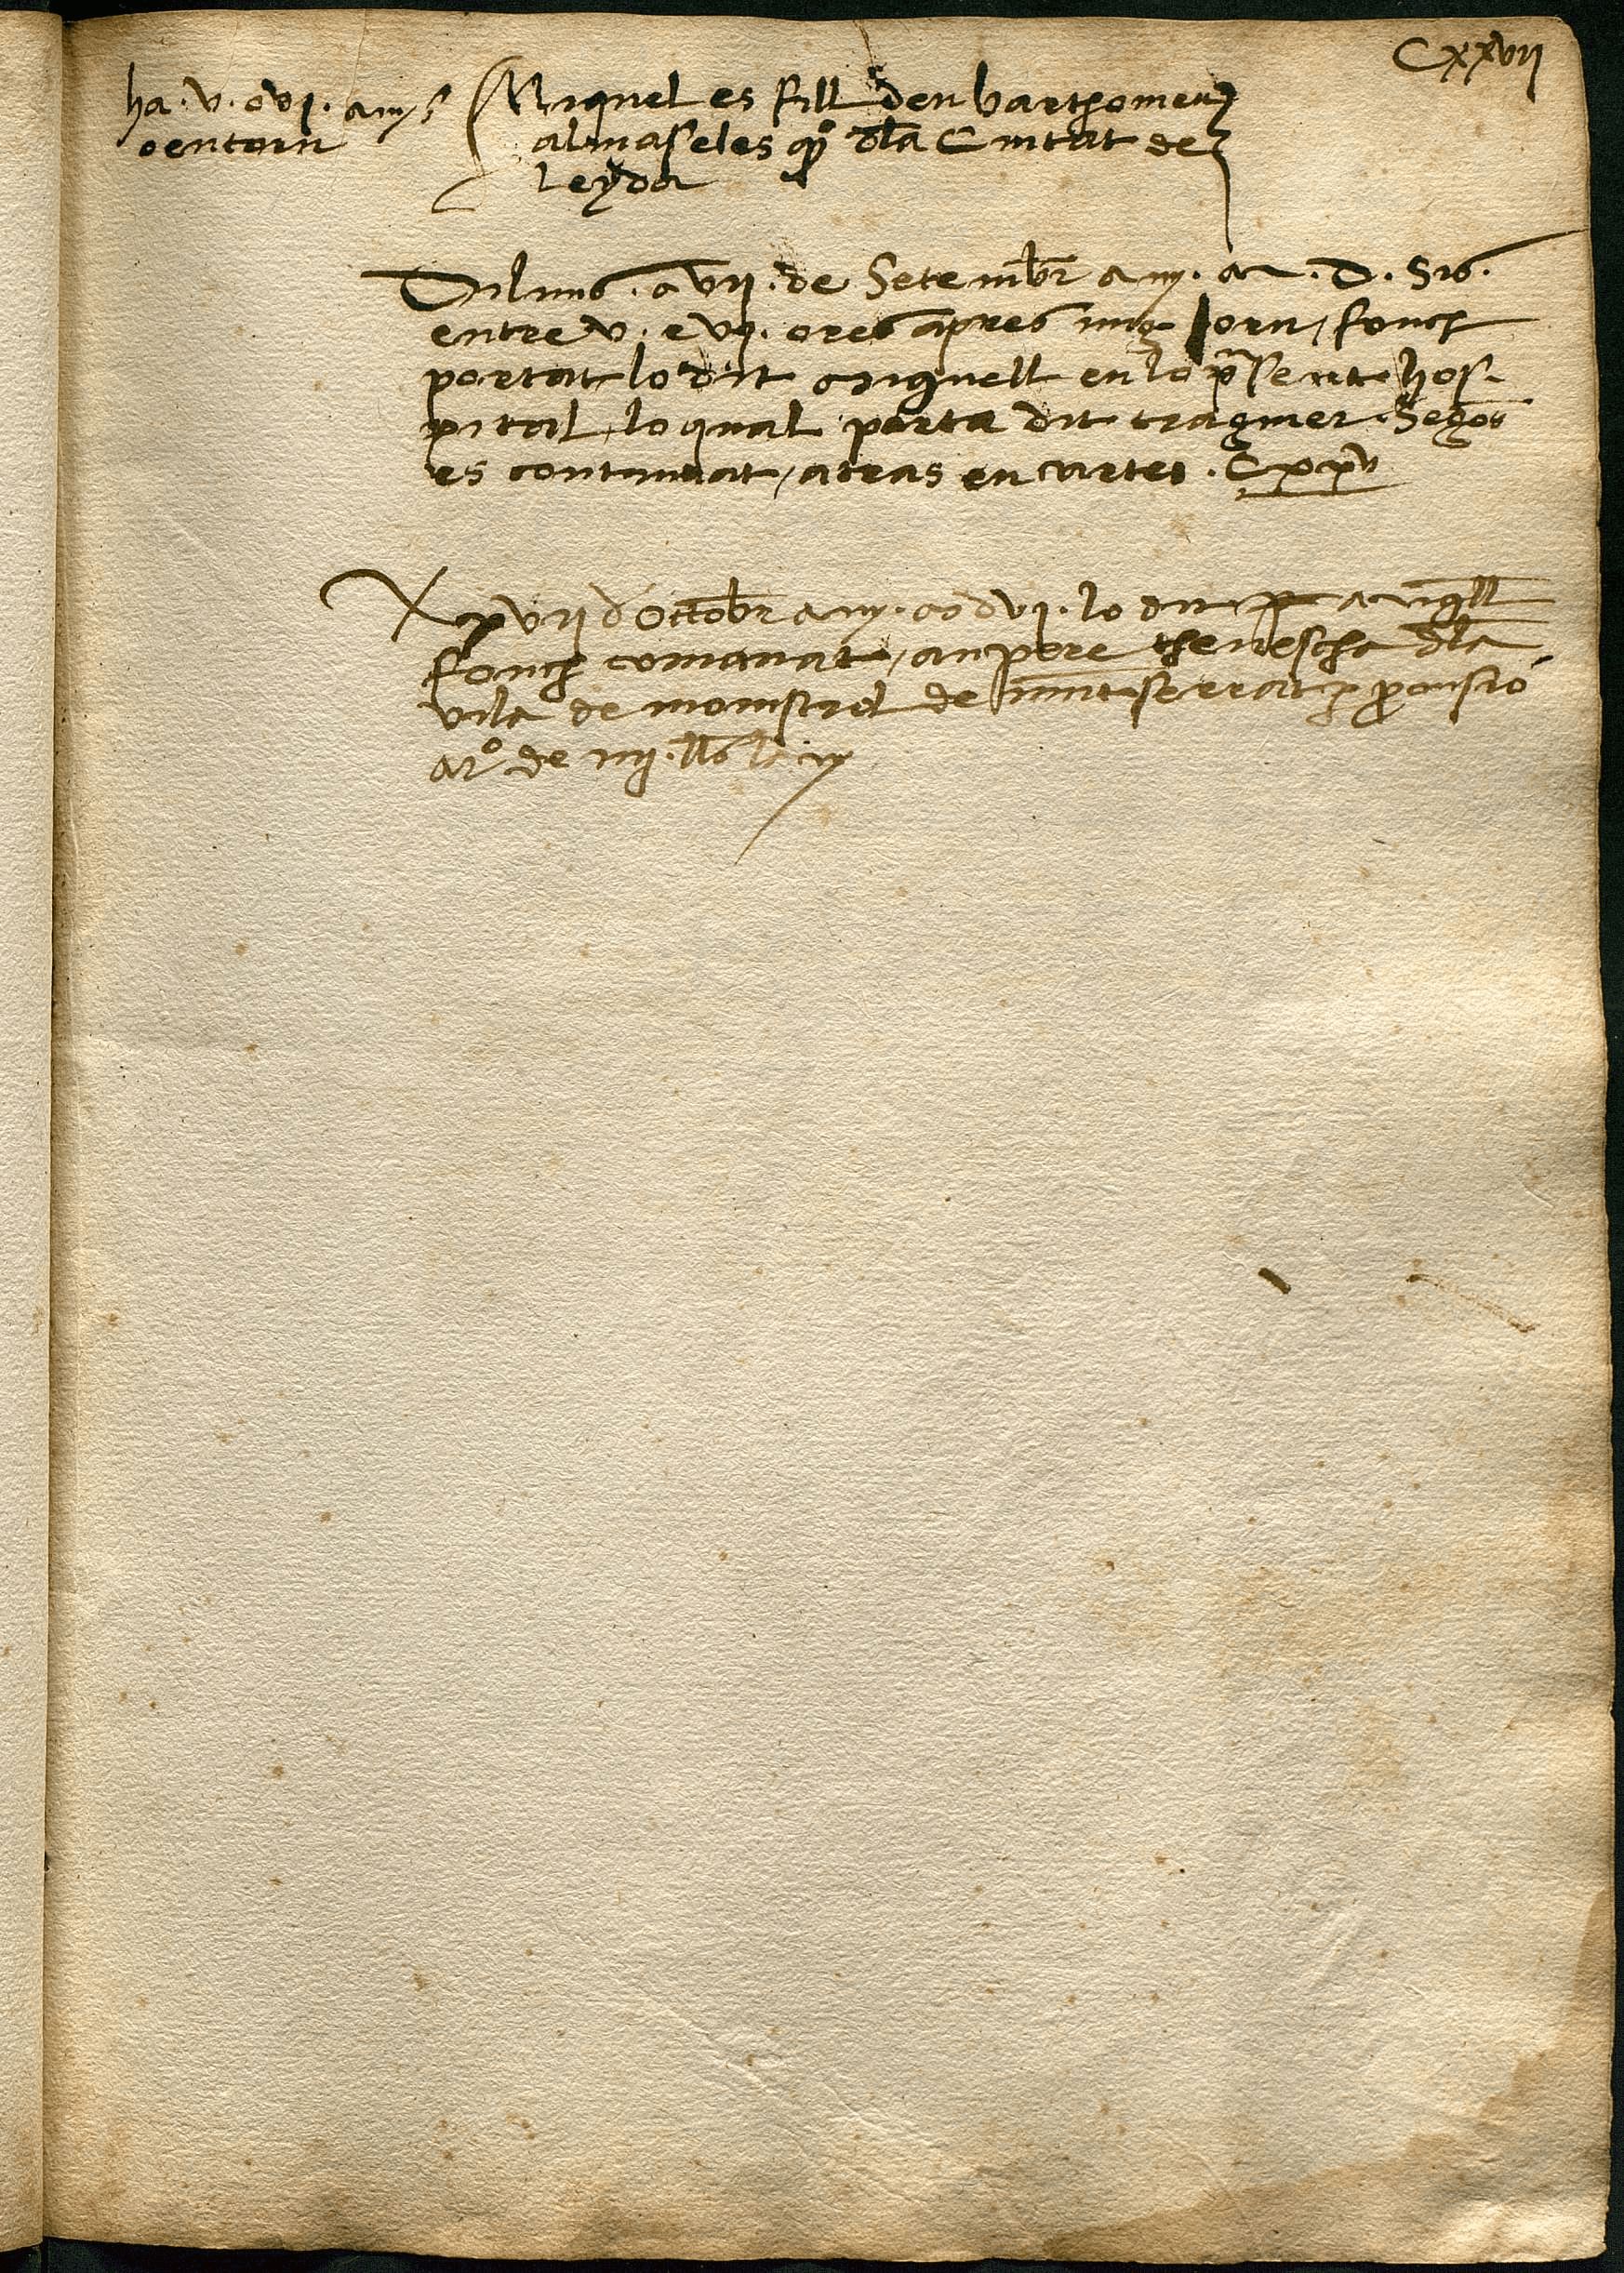 Cxxvii
ha .v. o vi. anys
o entorn
Miquel es fill den barthomeu
almaseles qº dla Ciutat de
leyda
Diluns. a vii. de Setembr any. M. D. Sis.
entre v. e vi. ores apres mig Jorn / fonch
portat lo dit Miquell en lo psent hos-
pital, lo qual porta dit traginer. Segos
es continuat / atras en cartes. Cxxv
Xxvii d Octobr any. MDvi. lo dit Miqll
fonch comanat / an pere
vila de monistrol de muntserrat p pensio
de iiii. lls